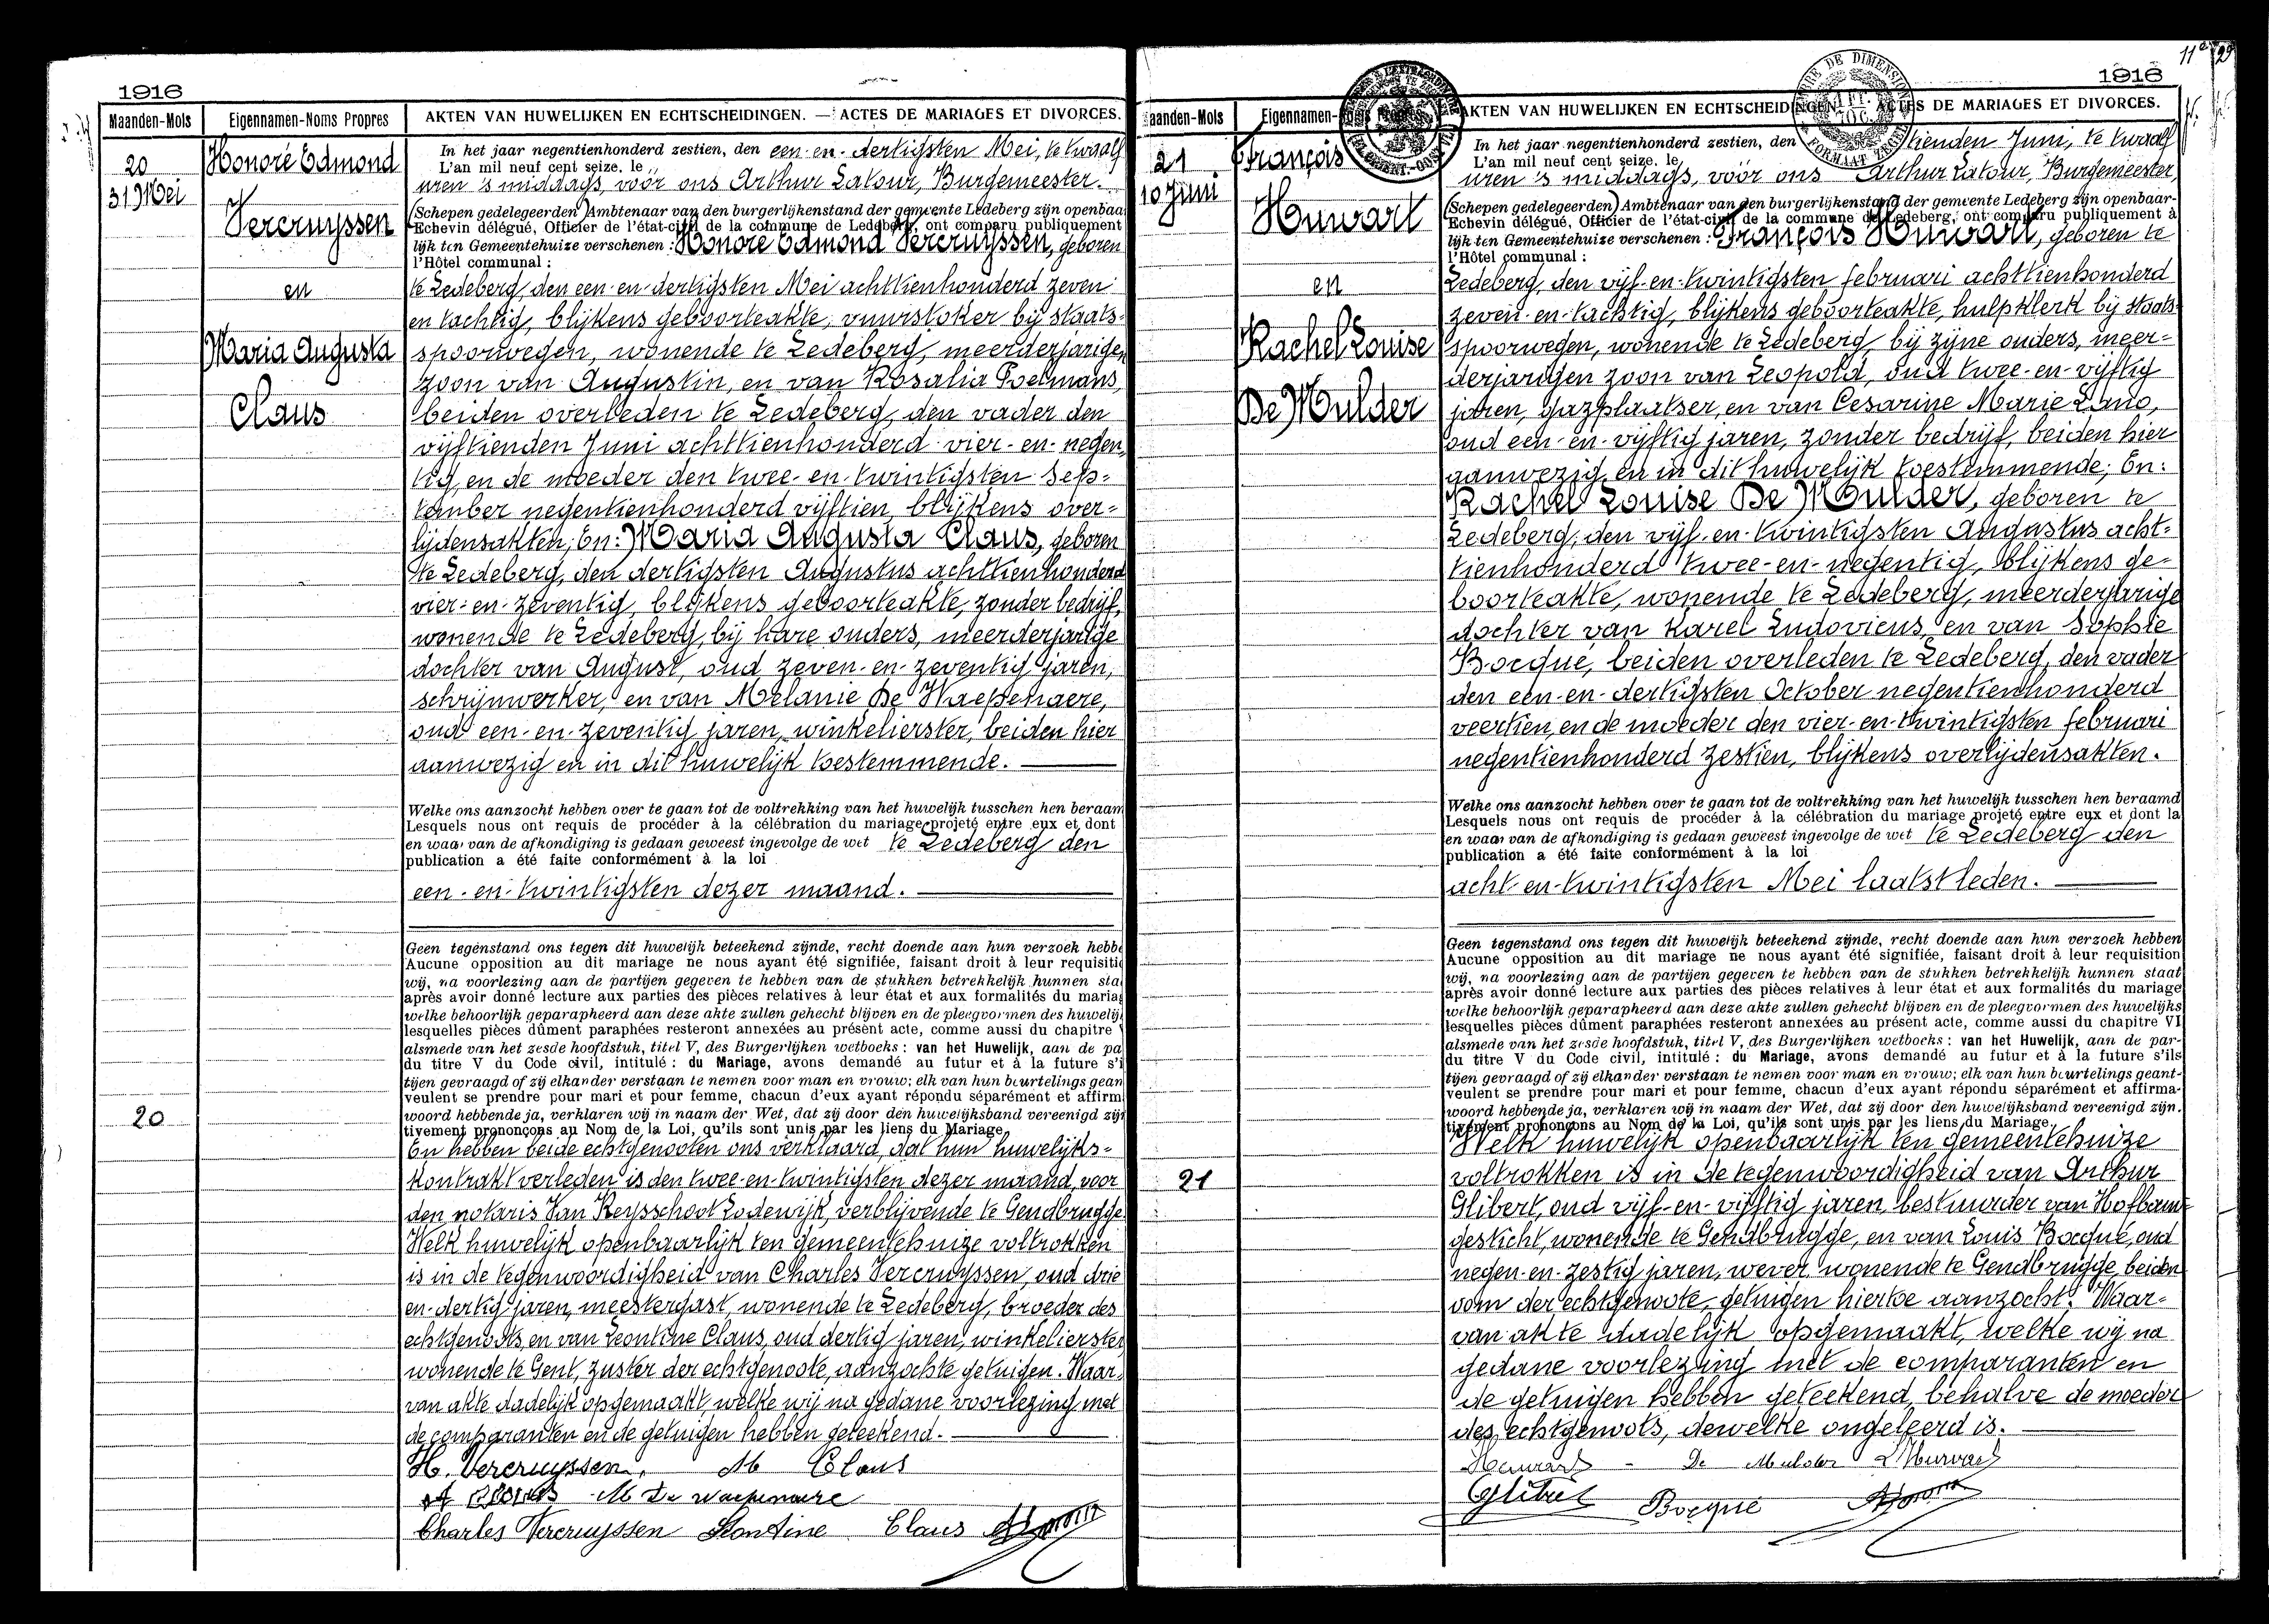 1916
Maanden-Mois
Eigennamen-Noms Propres
AKTEN VAN HUWELIJKEN EN ECHTSCHEIDINGEN. — ACTES DE MARIAGES ET DIVORCES.
20
31 Mei
Honoré Edmond
Vercruyssen
en
Maria Augusta
Claus
In het jaar negentienhonderd zestien, den een-en-dertigsten Mei, te twaalf
L'an mil neuf cent seize, le
uren 's middags, vóór ons Arthur Latour, Burgemeester.
(Schepen gedelegeerden) Ambtenaar van den burgerlijkenstand der gemeente Ledeberg zijn openbaa
Echevin délégué, Officier de l'état-civil de la commune de Ledeberg, ont comparu publiquement
lijk ten Gemeentehuize verschenen : Honoré Edmond Vercruyssen, geboren
l'Hôtel communal :
te Ledeberg, den een-en-dertigsten Mei achttienhonderd zeven
en tachtig, blijkens geboorteakte, vuurstoker bij staats-
spoorwegen, wonende te Ledeberg, meerderjarigen
zoon van Augustin, en van Rosalia Poelmans,
beiden overleden te Ledeberg, den vader den
vijftienden Juni achttienhonderd vier-en-negen-
tig, en de moeder den twee-en-twintigsten Sep=
tember negentienhonderd vijftien, blijkens over=
lijdensakten; En: Maria Augusta Claus, geboren
te Ledeberg, den dertigsten Augustus achttienhonderd
vier-en-zeventig, blijkens geboorteakte, zonder bedrijf,
wonende te Ledeberg, bij hare ouders, meerderjarige
dochter van August, oud zeven-en-zeventig jaren,
schrijnwerker, en van Melanie De Waepenaere,
oud een-en-zeventig jaren, winkelierster, beiden hier
aanwezig en in dit huwelijk toestemmende.
Welke ons aanzocht hebben over te gaan tot de voltrekking van het huwelijk tusschen hen beraam
Lesquels nous ont requis de procéder à la célébration du mariage projeté entre eux et dont
en waar van de afkondiging is gedaan geweest ingevolge de wet te Ledeberg den
publication a été faite conformément à la loi
een-en-twintigsten dezer maand.
Geen tegenstand ons tegen dit huwelijk beteekend zijnde, recht doende aan hun verzoek hebbe
Aucune opposition au dit mariage ne nous ayant été signifiée, faisant droit à leur requisitio
wij, na voorlezing aan de partijen gegeven te hebben van de stukken betrekkelijk hunnen sta
après avoir donné lecture aux parties des pièces relatives à leur état et aux formalités du mariag
welke behoorlijk geparapheerd aan deze akte zullen gehecht blijven en de pleegvormen des huwelij
lesquelles pièces dûment paraphées resteront annexées au présent acte, comme aussi du chapitre V
alsmede van het zesde hoofdstuk, titel V, des Burgerlijken wetboeks : van het Huwelijk, aan de pa
du titre V du Code civil, intitulé : du Mariage, avons demandé au futur et à la future s'i
tijen gevraagd of zij elkander verstaan te nemen voor man en vrouw; elk van hun beurtelings gean
veulent se prendre pour mari et pour femme, chacun d'eux ayant répondu séparément et affirm
woord hebbende ja, verklaren wij in naam der Wet, dat zij door den huwelijksband vereenigd zij
tivement prononçons au Nom de la Loi, qu'ils sont unis par les liens du Mariage.
20
En hebben beide echtgenooten ons verklaard, dat hun huwelijks=
kontrakt verleden is den twee-en-twintigsten dezer maand, voor
den notaris Van Reysschoot Lodewijk, verblijvende te Gendbrugge.
Welk huwelijk openbaarlijk ten gemeentehuize voltrokken
is in de tegenwoordigheid van Charles Vercruyssen, oud drie
en-dertig jaren, meestergast, wonende te Ledeberg, broeder des
echtgenoots, en van Leontine Claus, oud dertig jaren, winkelierster
wonende te Gent, zuster der echtgenoote, aanzochte getuigen. Waar-
van akte dadelijk opgemaakt, welke wij na gedane voorlezing met
de comparanten en de getuigen hebben geteekend.
H. Vercruyssen, M Claus
A Claus M De Waepenaere
Charles Vercruyssen Leontine Claus
11e
1916
aanden-Mois
Eigennamen-
AKTEN VAN HUWELIJKEN EN ECHTSCHEIDINGEN. ACTES DE MARIAGES ET DIVORCES.
21
10 Juni
François
Huwart
en
Rachel Louise
De Mulder
In het jaar negentienhonderd zestien, den tienden Juni, te twaalf
L'an mil neuf cent seize, le
uren 's middags, vóór ons Arthur Latour, Burgemeester,
(Schepen gedelegeerden) Ambtenaar van den burgerlijkenstand der gemeente Ledeberg zijn openbaar-
Echevin délégué, Officier de l'état-civil de la commune de Ledeberg, ont comparu publiquement à
lijk ten Gemeentehuize verschenen : François Huwart, geboren te
l'Hôtel communal :
Ledeberg, den vijf-en-twintigsten februari achttienhonderd
zeven-en-tachtig, blijkens geboorteakte, hulpklerk bij staats-
spoorwegen, wonende te Ledeberg, bij zijne ouders, meer=
derjarigen zoon van Leopold, oud twee-en-vijftig
jaren, gazplaatser, en van Cesarine Marie Lano,
oud een-en-vijftig jaren, zonder bedrijf, beiden hier
aanwezig en in dit huwelijk toestemmende; En:
Rachel Louise De Mulder, geboren te
Ledeberg, den vijf-en-twintigsten Augustus acht=
tienhonderd twee-en-negentig, blijkens ge=
boorteakte, wonende te Ledeberg, meerderjarige
dochter van Karel Ludovicus, en van Sophie
Bocqué, beiden overleden te Ledeberg, den vader
den een-en-dertigsten October negentienhonderd
veertien, en de moeder den vier-en-twintigsten februari
negentienhonderd zestien, blijkens overlijdensakten.
Welke ons aanzocht hebben over te gaan tot de voltrekking van het huwelijk tusschen hen beraamd
Lesquels nous ont requis de procéder à la célébration du mariage projeté entre eux et dont la
en waar van de afkondiging is gedaan geweest ingevolge de wet te Ledeberg den
publication a été faite conformément à la loi
acht-en-twintigsten Mei laatstleden.
Geen tegenstand ons tegen dit huwelijk beteekend zijnde, recht doende aan hun verzoek hebben
Aucune opposition au dit mariage ne nous ayant été signifiée, faisant droit à leur requisition
wij, na voorlezing aan de partijen gegeven te hebben van de stukken betrekkelijk hunnen staat
après avoir donné lecture aux parties des pièces relatives à leur état et aux formalités du mariage
welke behoorlijk geparapheerd aan deze akte zullen gehecht blijven en de pleegvormen des huwelijks
lesquelles pièces dûment paraphées resteront annexées au présent acte, comme aussi du chapitre VI
alsmede van het zesde hoofdstuk, titel V, des Burgerlijken wetboeks : van het Huwelijk, aan de par-
du titre V du Code civil, intitulé : du Mariage, avons demandé au futur et à la future s'ils
tijen gevraagd of zij elkander verstaan te nemen voor man en vrouw; elk van hun beurtelings geant-
veulent se prendre pour mari et pour femme, chacun d'eux ayant répondu séparément et affirma-
woord hebbende ja, verklaren wij in naam der Wet, dat zij door den huwelijksband vereenigd zijn.
tivement prononçons au Nom de la Loi, qu'ils sont unis par les liens du Mariage.
21
Welk huwelijk openbaarlijk ten gemeentehuize
voltrokken is in de tegenwoordigheid van Arthur
Glibert, oud vijf-en-vijftig jaren, bestuurder van Hofbouw-
gesticht, wonende te Gendbrugge, en van Louis Bocqué, oud
negen-en-zestig jaren, wever, wonende te Gendbrugge, beiden
oom der echtgenoote, getuigen hiertoe aanzocht. Waar=
van akte dadelijk opgemaakt, welke wij na
gedane voorlezing met de comparanten en
de getuigen hebben geteekend, behalve de moeder
des echtgenoots, dewelke ongeleerd is.
Huwart - De Mulder L Huwart
Glibert Bocqué